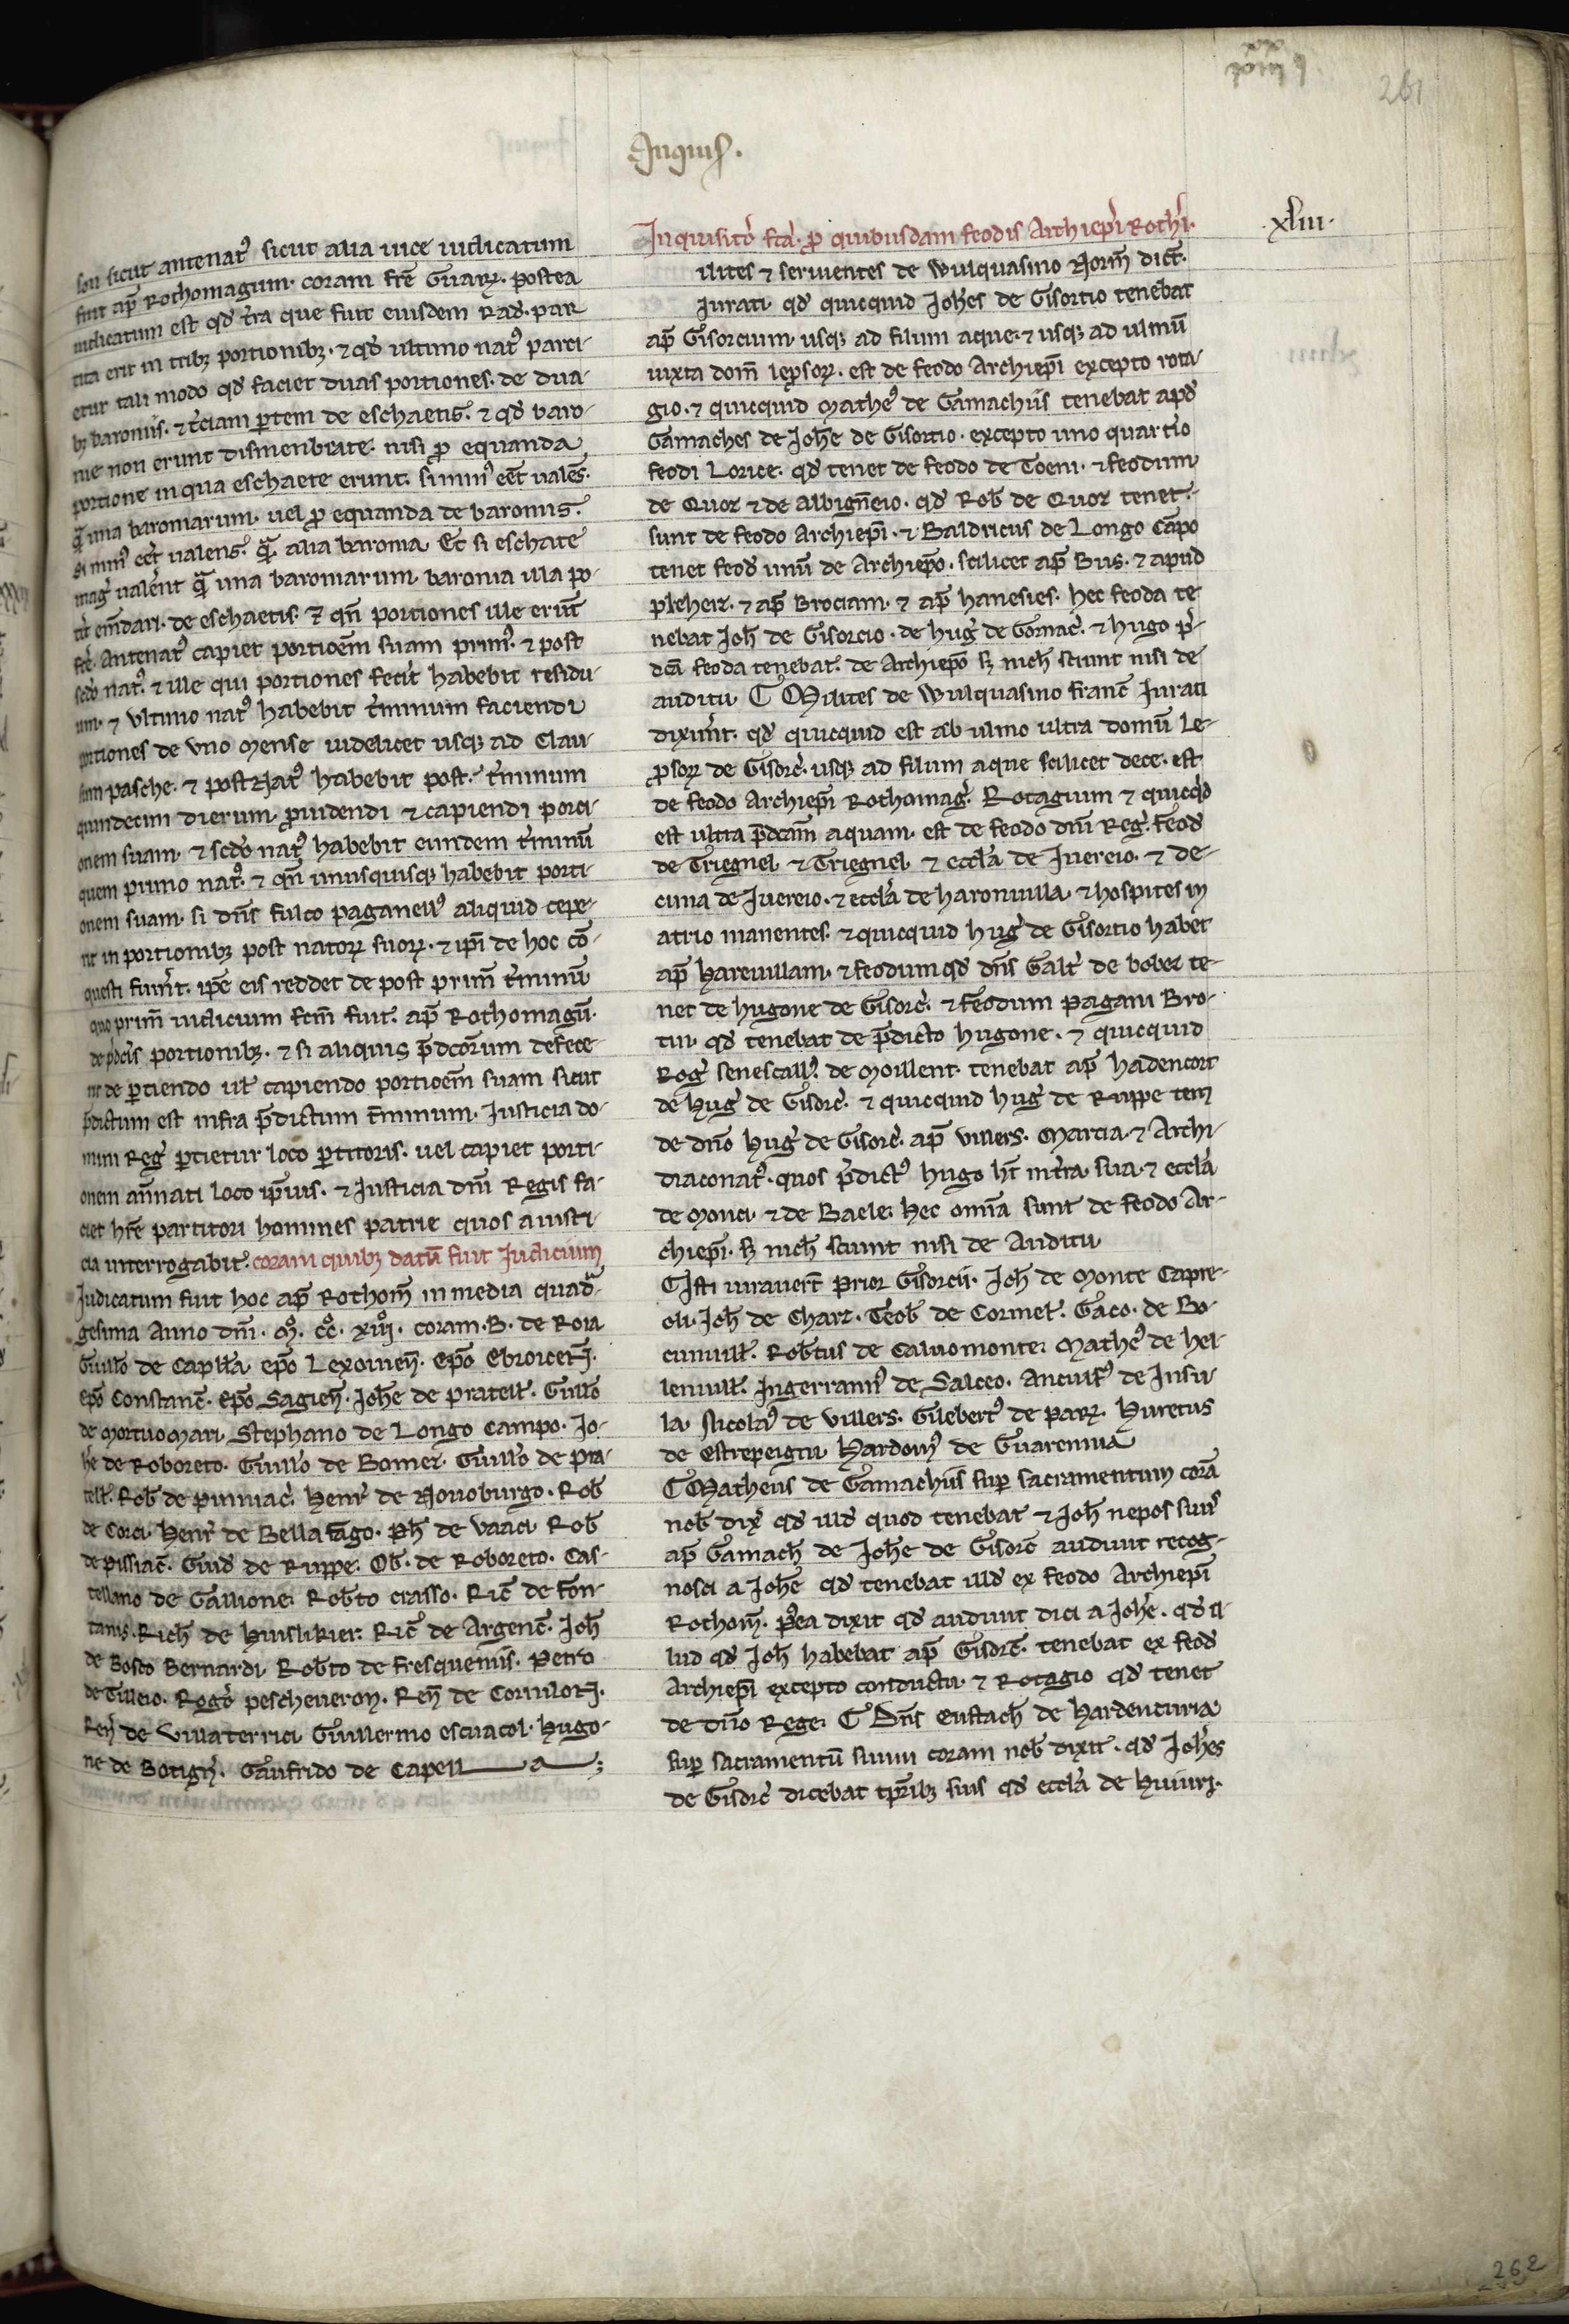 261
Inquis.
son sicut antenatꝰ sicut alia uice iudicatum
fuit ap̄ Rothomagum. coram fr̄e Guarꝫ. postea
iudicatum est qd̄ t̄ra que fuit eiusdem Rad̄. par
tita erit in tribꝫ portionibꝫ. ⁊ qd̄ ultimo natꝰ parci-
etur tali modo qd̄ faciet duas portiones. de dua-
bꝫ baroniis. ⁊ t̄ciam ꝑtem de eschaetis. ⁊ qd̄ baro-
nie non erunt dismenbrate. nisi ꝓ equanda
portione in qua eschaete erunt. si minꝰ eēt ualēs.
q̄ una baroniarum. uel ꝓ equanda de baroniis.
si minꝰ eēt ualens. q̄ alia baronia Et si eschaete
mag̉ ualerent q̄ una baroniarum. baronia illa po-
t̄it em̄dari. de eschaetis. ⁊ qn̄ portiones ille erūt
fc̄e. Antenatꝰ capiet portioēm suam primꝰ. ⁊ post
sc̄do natꝰ. ⁊ ille qui portiones fecit habebit residu-
um. ⁊ Vltimo natꝰ habebit t̄minum faciendi
portiones de vno Mense uidelicet usqꝫ ad Clau-
sum pasche. ⁊ post Natꝰ habebit post. t̄minum
quindecim dierum ꝓuidendi ⁊ capiendi porci-
onem suam. ⁊ sc̄do natꝰ habebit eundem t̄minū
quem primo natꝰ. ⁊ qn̄ unusquisqꝫ habebit porti-
onem suam. si dn̄s fulco paganellꝰ aliquid cepe-
rit in portionibꝫ post natorꝫ suorꝫ. ⁊ ip̄i de hoc cō-
questi fuer̄t. ip̄e eis reddet de post prim̄ t̄minū
quo prim̄ iudicium fc̄m fuit. ap̄ Rothomagū.
de p̄dc̄is portionibꝫ. ⁊ si aliquis p̄dc̄orum defece-
rit de ꝑtiendo ul̄ capiendo portioēm suam sicut
p̄dictum est infra p̄dictum t̄minum. Iusticia do-
mini Reg̉ ꝑtietur loco ꝑtitoris. uel capiet porti-
onem an̄nati loco ip̄ius. ⁊ Iusticia dn̄i Regis fa-
ciet hr̄e partitori homines patrie quos a iusti-
cia interrogabit. coram quibꝫ datū fuit Iudicium
Judicatum fuit hoc ap̄ Rothom̄ in media quadᷓ-
gesima Anno dn̄i. Mº. CCº. XIIIIº. coram .B. de Roia
Guill̄o de Capll̄a ep̄o Lexouien̄. Ep̄o Ebroicen̄.
Ep̄o Constanc̄. Ep̄o Sagien̄. Ioh̄e de Pratell̄. Guill̄o
de Mortuomari. Stephano de Longo Campo. Io-
h̄e de Roboreto. Guill̄o de Bomer̄. Guill̄o de Pra-
tell̄. Rob̄ de pinnac̄. Henr̄ de Nouoburgo. Rob̄
de Corci. Henr̄ de Bella fago. Ph̄ de Vaaci. Rob̄
de Pissiac̄. Guid̄ de Ruppe. Ob̄. de Roboreto. Cas-
tellano de Gaillione. Rob̄to crasso. Ric̄ de Fon-
tanis. Rich̄ de Ric̄ de Argenc̄. Ioh̄
de Bosco Bernardi. Rob̄to de Fresquenis. Petro
de Tilleio. Roḡo pescheueron. Ren̄ de Cornilon̄.
Ren̄ de Villaterrici Guillermo escuacol. Hugo-
ne de Botign̄. Gaufrido de Capell a;
Inquisitō fc̄a. ꝓ quibusdam feodis Archiep̄i Roth̄i. .xliii.
ilites ⁊ seruientes de Wulquasino Norm̄ dict̄.
Iurati qd̄ quicquid Ioh̄es de Gisortio tenebat
ap̄ Gisorcium. usqꝫ ad filum aque. ⁊ usqꝫ ad ulmū
iuxta dom̄ lep̄sorꝫ. est de feodo Archiep̄i excepto rota-
gio. ⁊ quicquid Matheꝰ de Gamachiis tenebat apd̄
Gamaches de Ioh̄e de Gisortio. excepto uno quartio
feodi Lorice. qd̄ tenet de feodo de Toeni. ⁊ feodum
de Quoz ⁊ de Albign̄eio. qd̄ Rob̄ de Quoz tenet.
sunt de feodo Archiep̄i. ⁊ Baldricus de Longo Cāpo
tenet feod̄ unū de Archiep̄o. scilicet ap̄ Bus. ⁊ apud
pleheir. ⁊ ap̄ Brociam. ⁊ ap̄ hanesies. hec feoda te
nebat Ioh̄ de Gisorcio. de hug̉ de Gornac̄. ⁊ hugo p̄-
dc̄a feoda tenebat. de Archiep̄o sꝫ nich̄ sciunt nisi de
auditu. ⸿ Milites de Wulquasino franc̄ Iurati
dixer̄t. qd̄ quicquid est ab ulmo ultra domū le-
ꝓsorꝫ de Gisorc̄. usqꝫ ad filum aque scilicet dece. est
de feodo Archiep̄i Rothomag̉. Rotagium ⁊ quicqd̄
est ultra p̄dc̄am aquam. est de feodo dn̄i Reg̉. feod̄
de Triegnel. ⁊ Triegnel. ⁊ eccl̄a de Iuereio. ⁊ de-
cima de Iuereio. ⁊ eccl̄a de haronuilla. ⁊ hospites in
atrio manentes. ⁊ quicquid hug̉ de Gisortio habet
ap̄ hareuillam. ⁊ feodum qd̄ dn̄s Galt̄ de bobez te-
net de hugone de Gisorc̄. ⁊ feodum pagani Bro-
tin. qd̄ tenebat de p̄dicto hugone. ⁊ quicquid
Rog̉ senescallꝰ de Moillent. tenebat ap̄ hadencort
de hug̉ de Gisorc̄. ⁊ quicquid hug̉ de Ruppe ten̄
de dn̄o hug̉ de Gisorc̄. ap̄ Villers. Marcia. ⁊ Archi-
diaconatꝰ. quos p̄dictꝰ hugo ht̄ in t̄ra sua. ⁊ eccl̄a
de Monci. ⁊ de Baele. hec omīa sunt de feodo Ar-
chiep̄i. sꝫ nich̄ sciunt nisi de Auditu.
⸿ Isti iurauer̄t Prior Gisorcii. Ioh̄ de Monte Capre-
oli. Ioh̄ de Charz. Teob̄ de Cormel̄. Gaco. de Bo-
cinuill̄. Rob̄tus de Caluomonte. Matheꝰ de hel-
lenuill̄. Ingerrannꝰ de Salceo. Anculfꝰ de Insu
la. Nicolaꝰ de Villers. Gilebertꝰ de Parꝫ. Huretus
de Estrepeigni. Hardoinꝰ de Guarenna
⸿ Matheus de Gamachiis sup̄ sacramentum corā
nob̄ dix̄ qd̄ illd̄ quod tenebat ⁊ Ioh̄ nepos suus
ap̄ Gamach̄ de Ioh̄e de Gisorc̄ audiuit recog-
nosci a Ioh̄e qd̄ tenebat illd̄ ex feodo Archiep̄i
Rothom̄. p̄ea dixit qd̄ audiuit dici a Ioh̄e. qd̄ il-
lud qd̄ Ioh̄ habebat ap̄ Gisorc̄. tenebat ex feod̄
Archiep̄i excepto conductu. ⁊ Rotagio qd̄ tenet
de dn̄o Rege. ⸿ Dn̄s Eustach̄ de Hardencuria
sup̄ sacramentū suum coram nob̄ dixit. qd̄ Ioh̄es
de Gisorc̄ dicebat tp̄ribꝫ suis qd̄ eccl̄a de
262